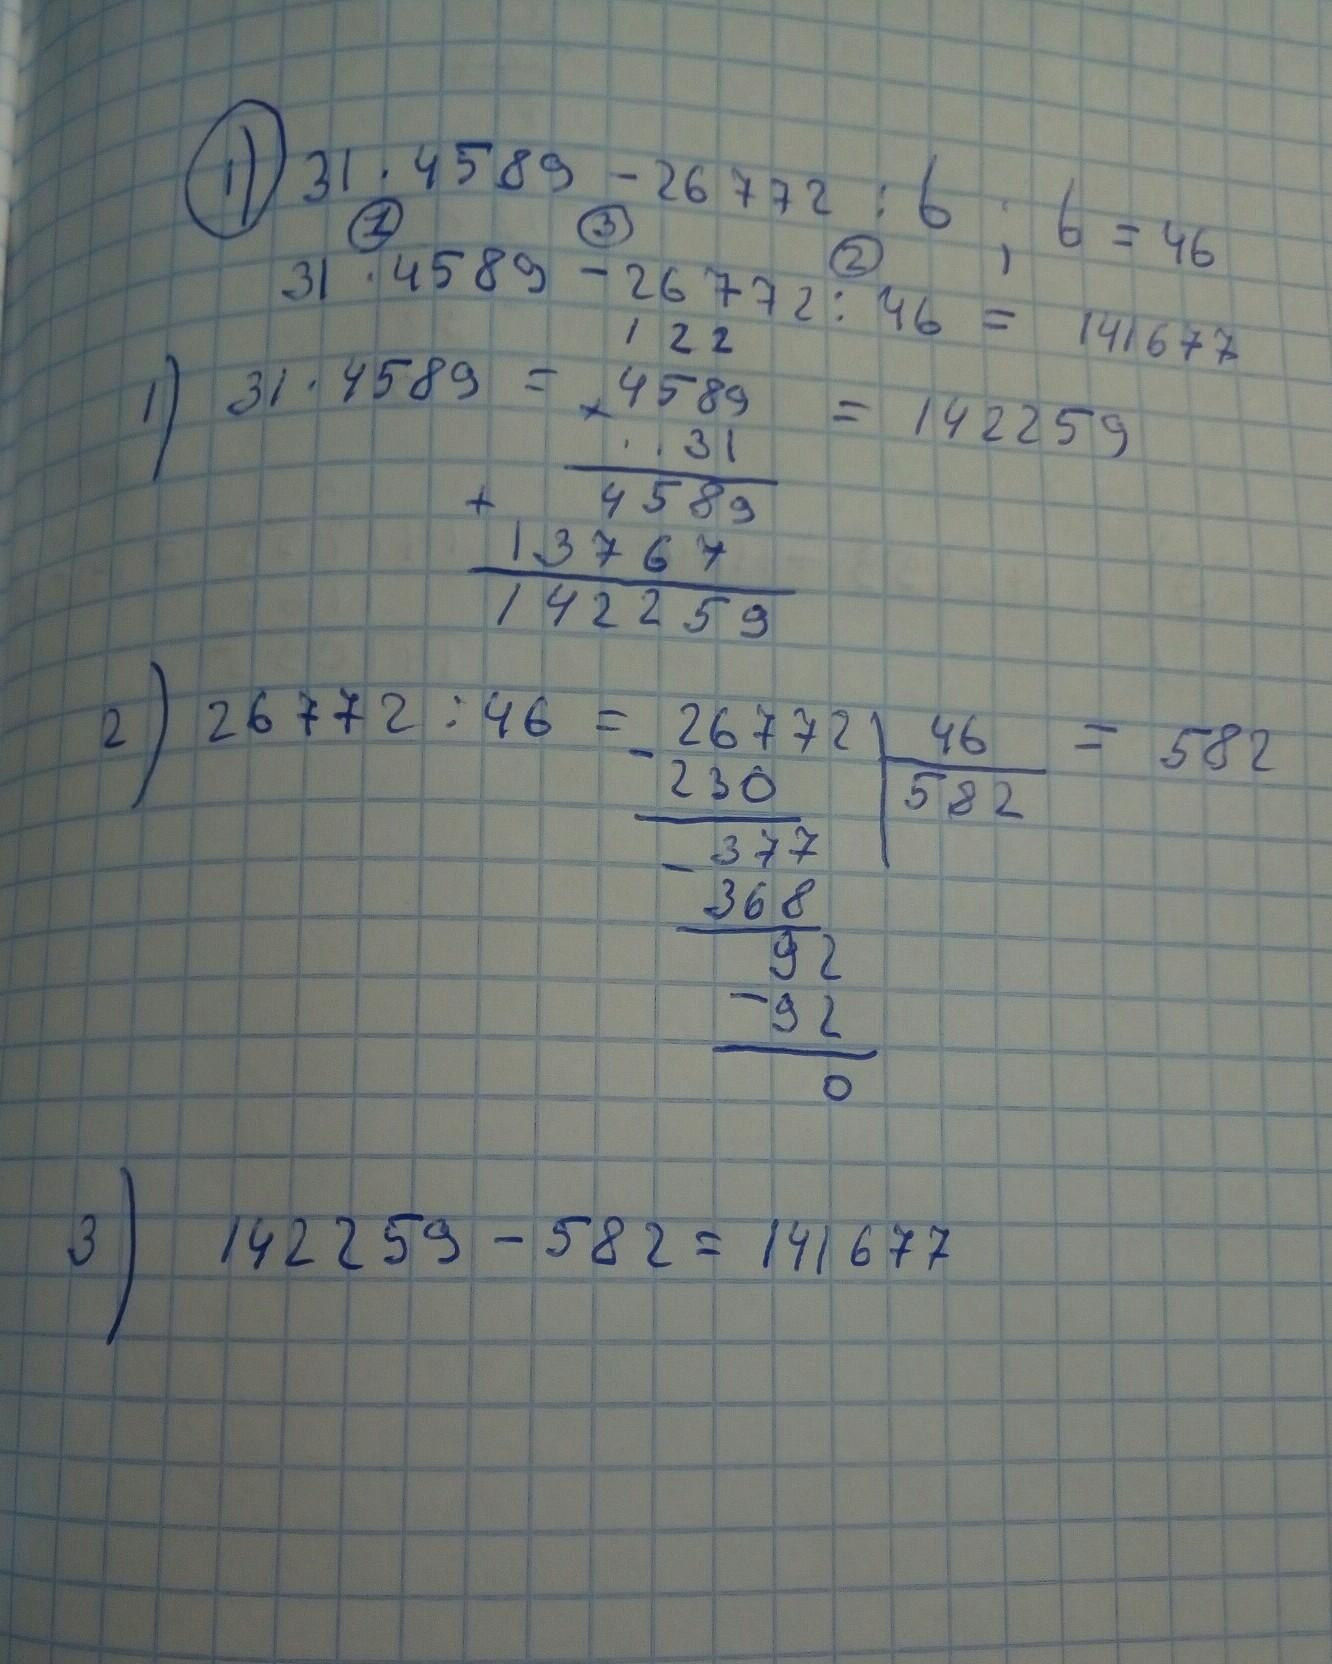 1) 31 · 4589 - 26772 : b ; b = 46
1 3 2
31 · 4589 - 26772 : 46 = 141677
1 2 2
1) 31 · 4589 = × 4589 = 142259
. . 31
+ 4589
13767
142259
2) 26772 : 46 = - 26772 | 46 = 582
230 | 582
- 377
368
92
- 92
0
3) 142259 - 582 = 141677